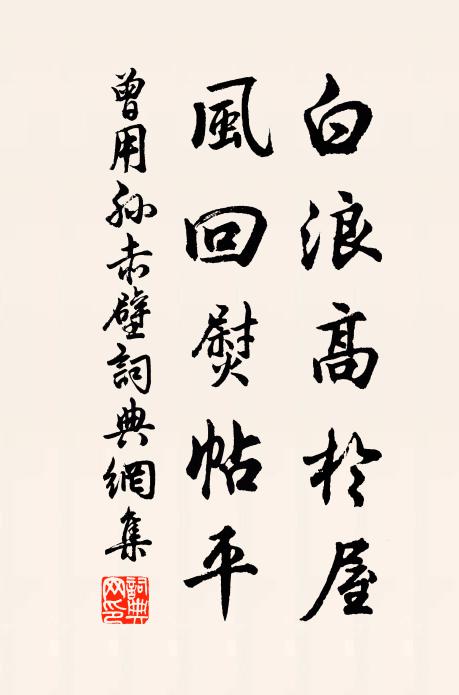 白浪高於屋
風回熨帖平
曾用孫赤壁詞典網集
詞典網印